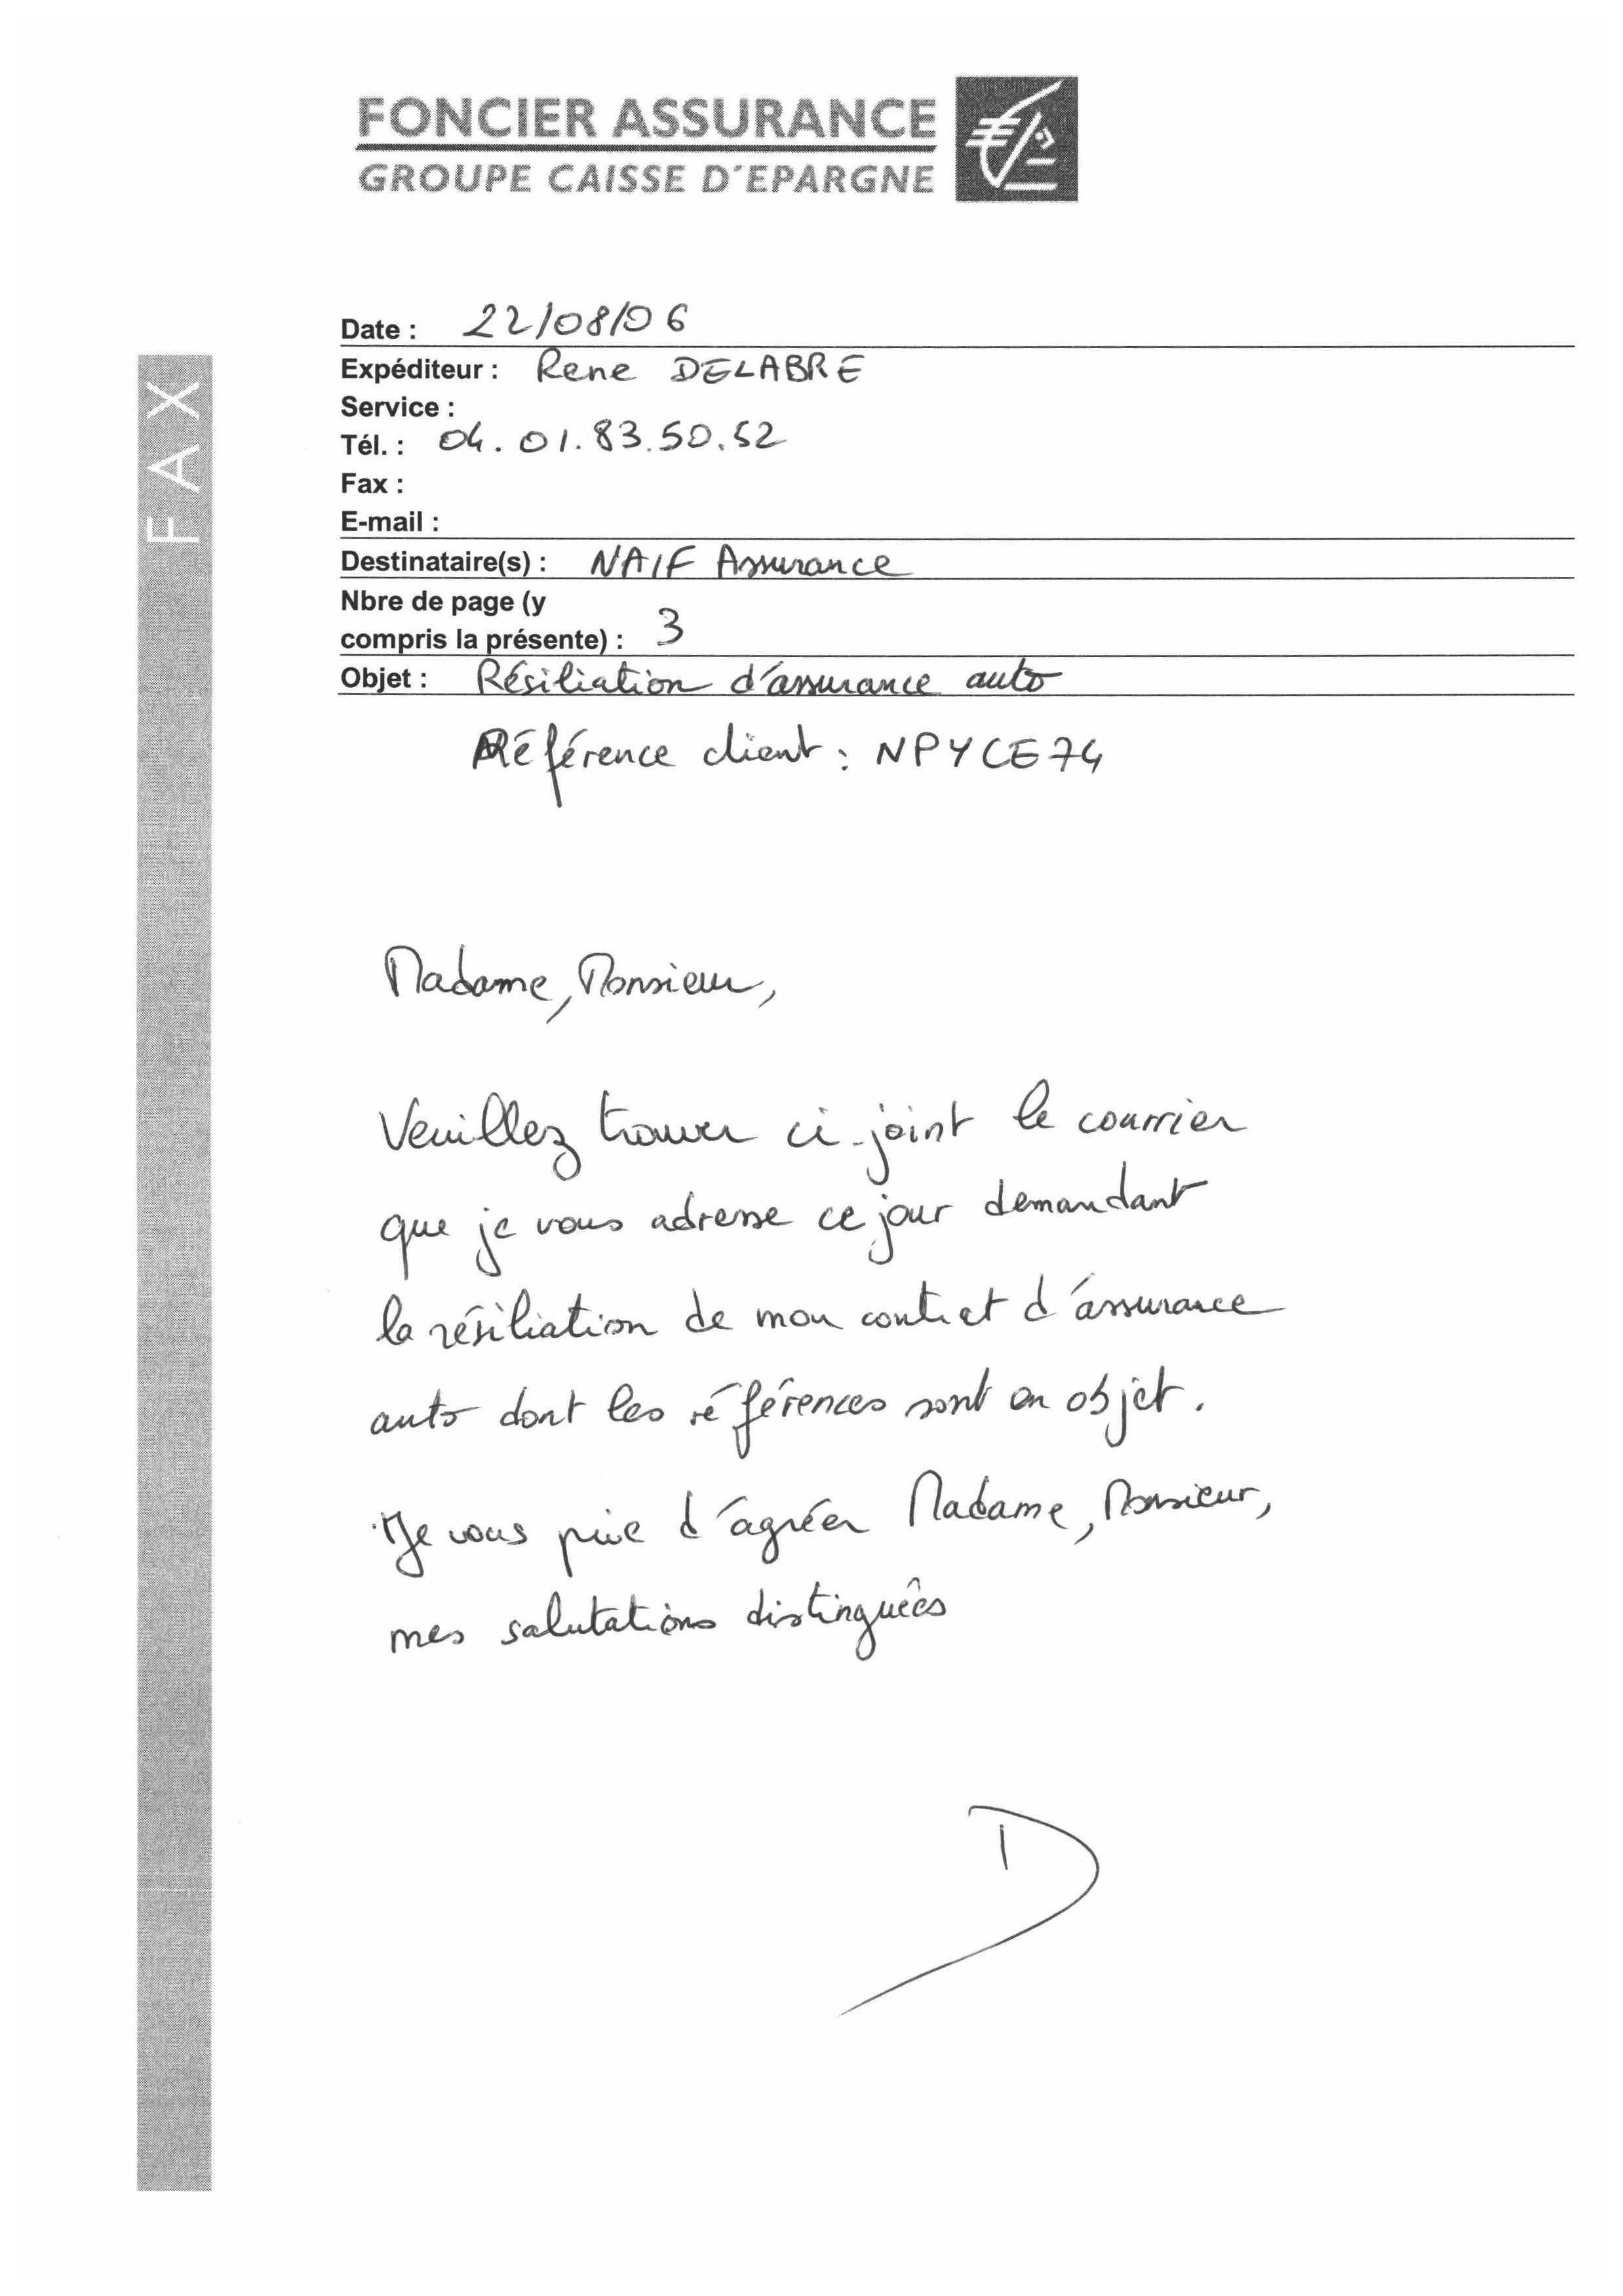 FONCIER ASSURANCE
GROUPE CAISSE D'EPARGNE
FAX
Date : 22/08/06
Expéditeur : Rene DELABRE
Service :
Tél. : 04.01.83.50.52
Fax :
E-mail :
Destinataire(s) : NAIF Assurance
Nbre de page (y
compris la présente) : 3
Objet : Résiliation d'assurance auto
Référence client : NPYCE74
Madame, Monsieur,
Veuillez trouver ci-joint le courrier
que je vous adresse ce jour demandant
la résiliation de mon contrat d'assurance
auto dont les références sont en objet.
Je vous prie d'agréer Madame, Monsieur,
mes salutations distinguées
D